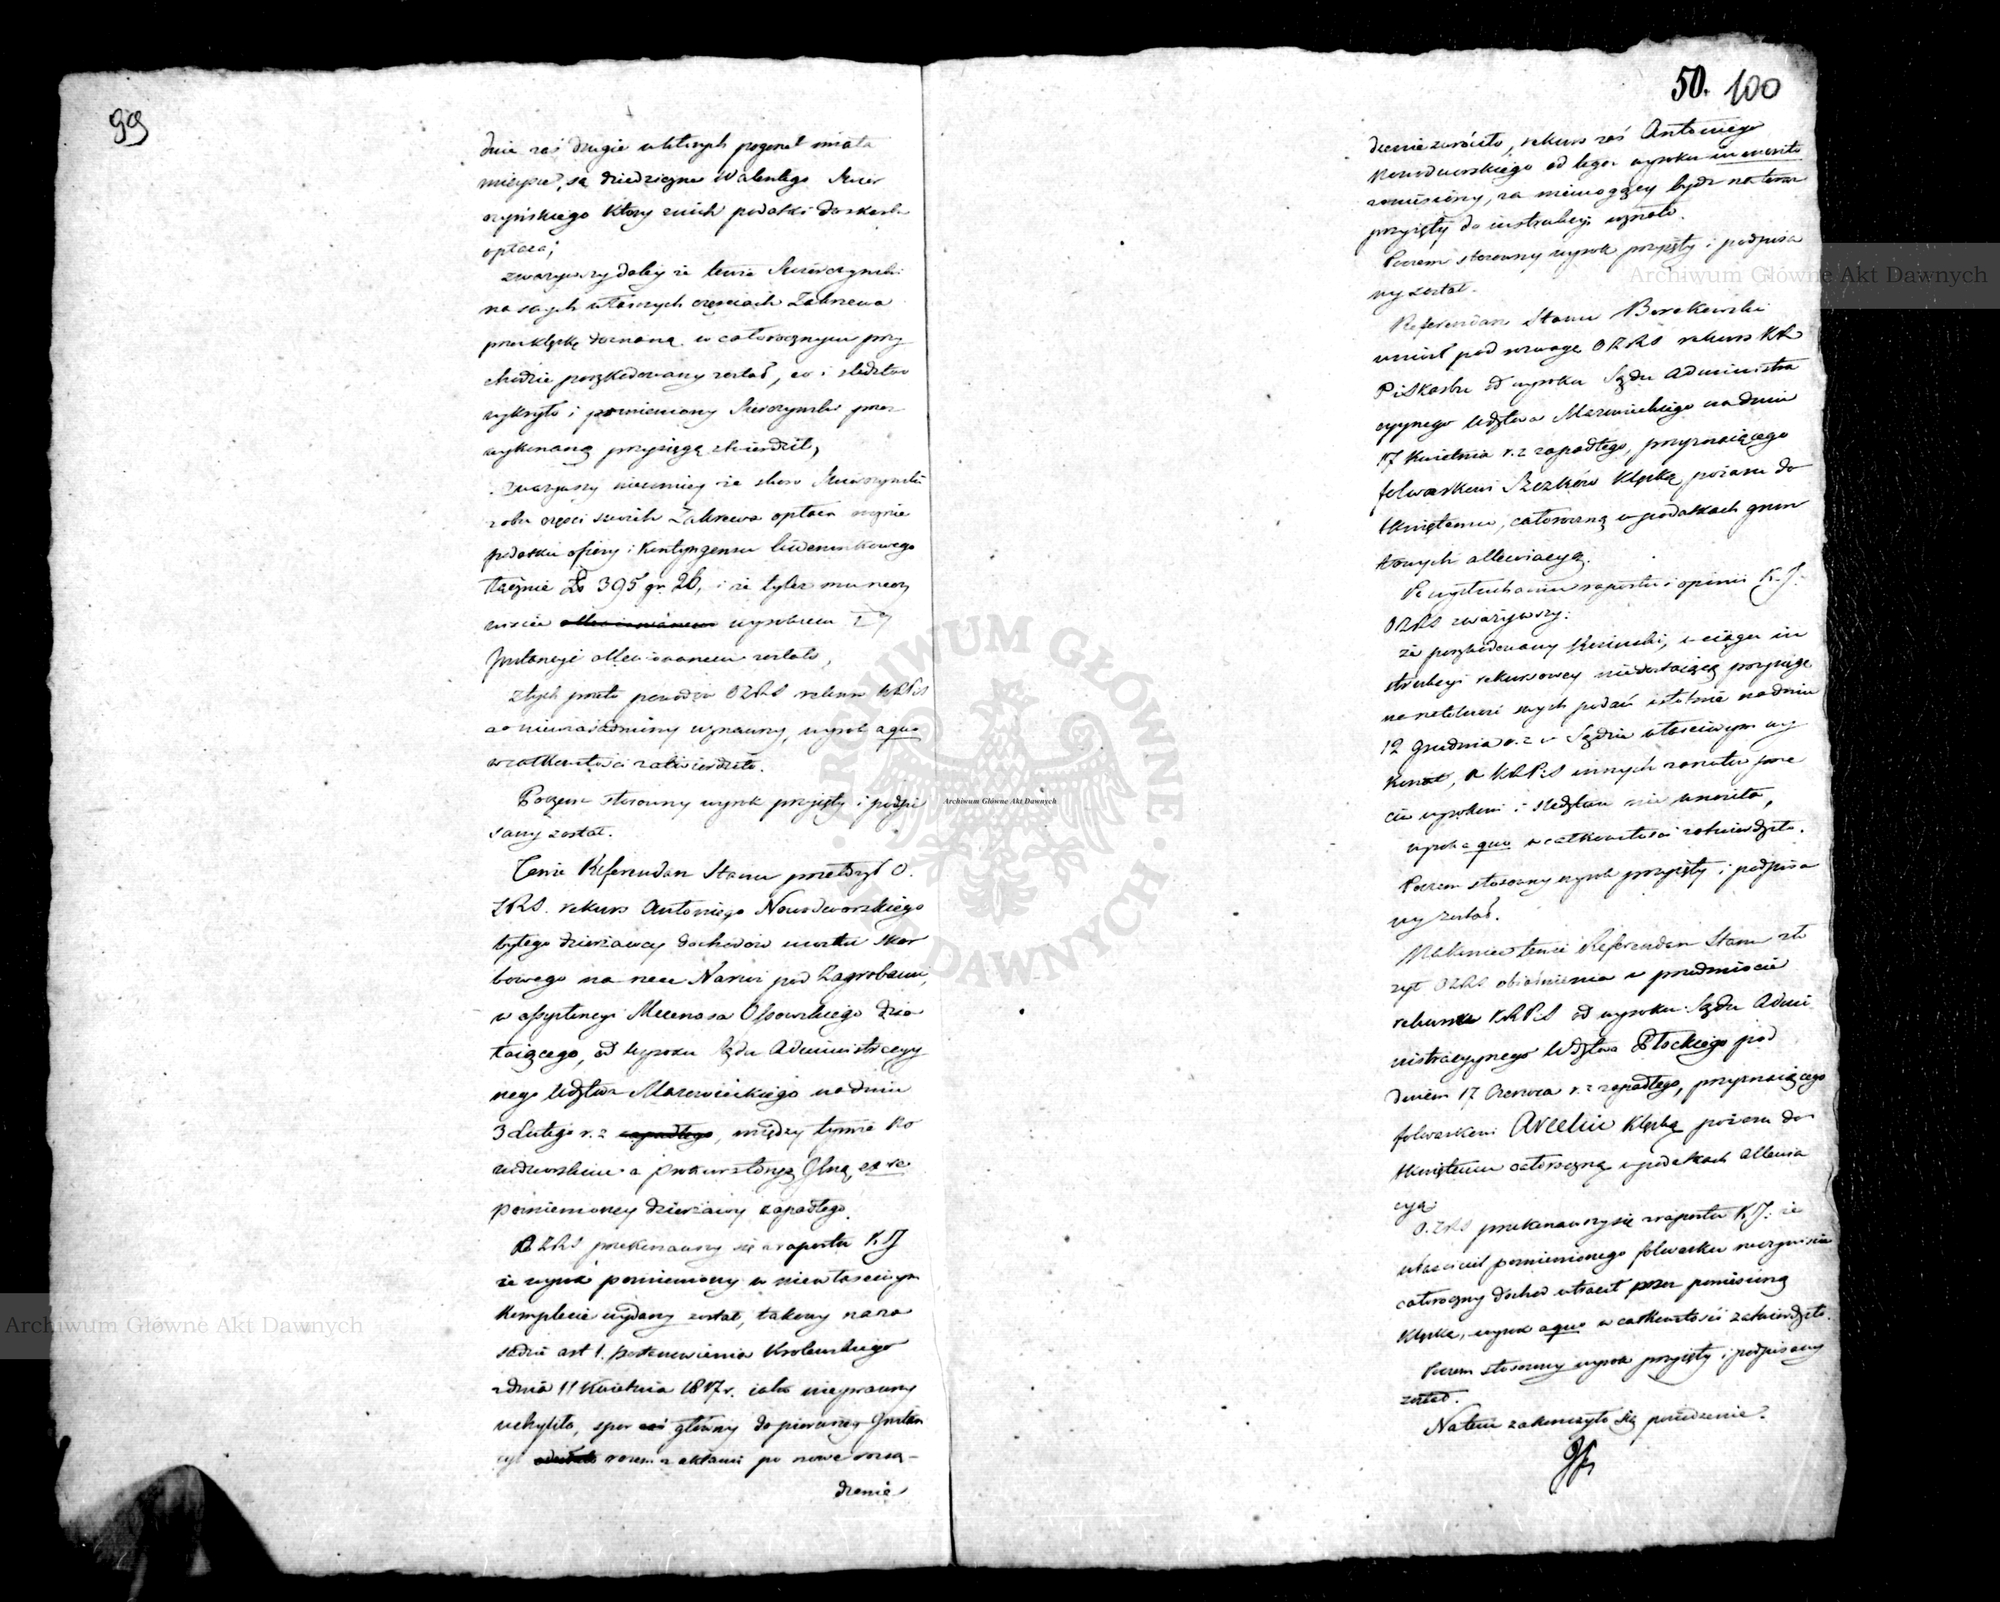 99
dnie zaś drugie w których pogorzel miała
mieysce, są dziedziczne Walentego Skier
czyńskiego który z nich podatki do skarbu
opłaca;
zważywszy daley że tenże Skierczyński
na swych własnych częściach Zakrzewa
przez klęskę doznaną w całorocznym przy
chodzie poszkodowany został, co i śledztwo
wykryło i pomieniony Skierczyński przez
wykonaną przysięgę stwierdził,
zważywszy niemniey że skoro Skierczyński
z obu części swoich Zakrzewa opłaca rocznie
podatku ofiary i kontyngensu liwerunkowego
łącznie Zł 395 gr. 26, i że tyleż mu rzeczy
wiście wyrokiem I
Instancyi allewiowanem zostało,
Z tych przeto powodów OZRS rekurs KRPiS
za nieuzasadniony uznawszy, wyrok a quo
w całkowitości zatwierdziło.
Poczem stosowny wyrok przyięty i podpi
sany został.
Tenże Referendarz Stanu przełożył O.
ZRS. rekurs Antoniego Nowodworskiego
byłego dzierżawcy dochodów mostu skar
bowego na rzece Narwi pod Zagrobami,
w assystencyi Mecenasa Ossowskiego dzia
łaiącego, od wyroku Sądu Administracyy
nego Wdztwa Mazowieckiego na dniu
3 Lutego r. z zapadłego, między tymże No
wodworskim a Prokuratoryą Glną ex re
pomienioney dzierżawy zapadłego.
OZRS przekonawszy się z raportu KJ
że wyrok pomieniony w niewłaściwym
komplecie wydany został, takowy na za
sadzie art 1. postanowienia Królewskiego
z dnia 11 Kwietnia 1817 r. iako nieprawny
uchyliło, spór zaś główny do pierwszey Instan
cyi razem z aktami po nowe rozsą-
dzenie
50. 100
dzenie zwróciło, rekurs zaś Antoniego
Nowodworskiego od tegoż wyroku in merito
zaniesiony, za niemogący bydź na teraz
przyięty do instrukcyi uznało.
Poczem stosowny wyrok przyięty i podpisa
ny został.
Referendarz Stanu Borakowski
wniósł pod rozwagę OZRS rekurs KR
PiSkarbu od wyroku Sądu Administra
cyynego Wdztwa Mazowieckiego na dniu
17 Kwietnia r. z zapadłego, przyznaiącego
folwarkowi Szczków klęską pożaru do
tkniętemu, całoroczną w podatkach grun
towych allewiacyą.
Po wysłuchaniu raportu i opinii K.J.
OZRS zważywszy:
że poszkodowany Kosiński, w ciągu in
strukcyi rekursowey niedostaiącą przysięgę
na rzetelność swych podań istotnie na dniu
12 Grudnia r. z w Sądzie właściwym wy
konał, a KRPiS innych zarzutów prze
ciw wyrokowi i śledztwu nie wnosiła,
wyrok a quo w całkowitości zatwierdziło.
Poczem stosowny wyrok przyięty i podpisa
ny został.
Nakoniec tenże Referendarz Stanu zło
żył OZRS obiaśnienia w przedmiocie
rekursu KRPiS od wyroku Sądu Admi
nistracyynego Wdztwa Płockiego pod
dniem 17 Czerwca r. z zapadłego, przyznaiącego
folwarkowi Arcelin klęską pożaru do
tkniętemu całoroczną w podatkach allewia
cyą.
O.ZRS przekonawszy się z raportu KJ. że
właściciel pomienionego folwarku rzeczywiście
całoroczny dochód utracił przez poniesioną
klęskę, wyrok a quo w całkowitości zatwierdziło.
Poczem stosowny wyrok przyięty i podpisany
został.
Na tem zakończyło się posiedzenie.
Archiwum Główne Akt Dawnych
Archiwum Główne Akt Dawnych
Archiwum Główne Akt Dawnych
ARCHIWUM GŁÓWNE AKT DAWNYCH